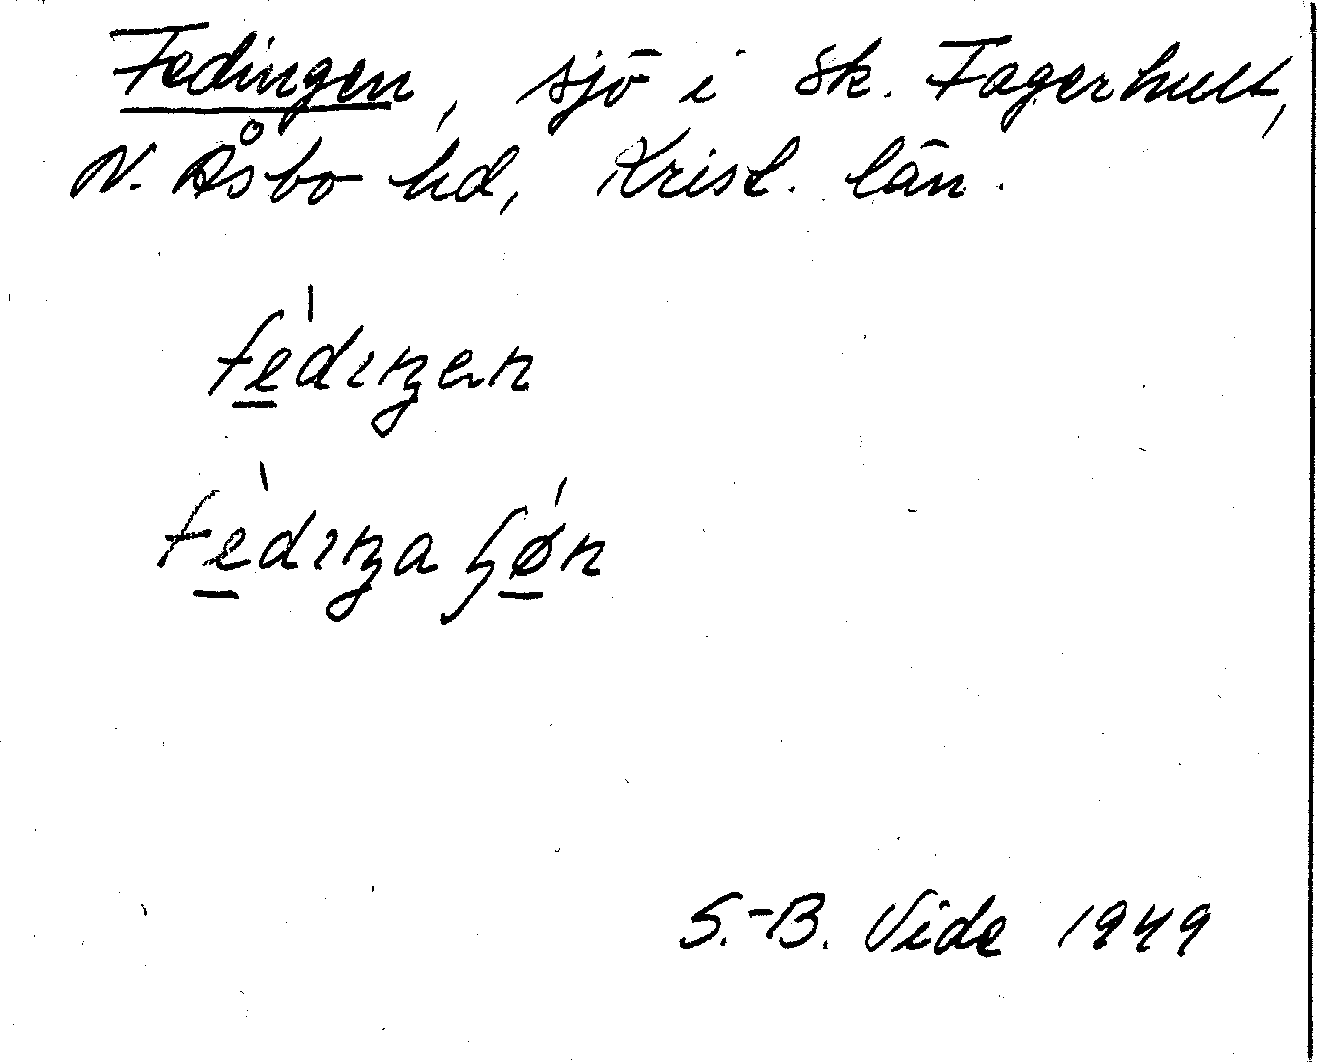 Fedingen, sjö i Sk. Fagerhult,
N. Åsbo hd, Krist. län.
fèdıŋen
fèdıŋa ʃǿn
S.-B. Vide 1949